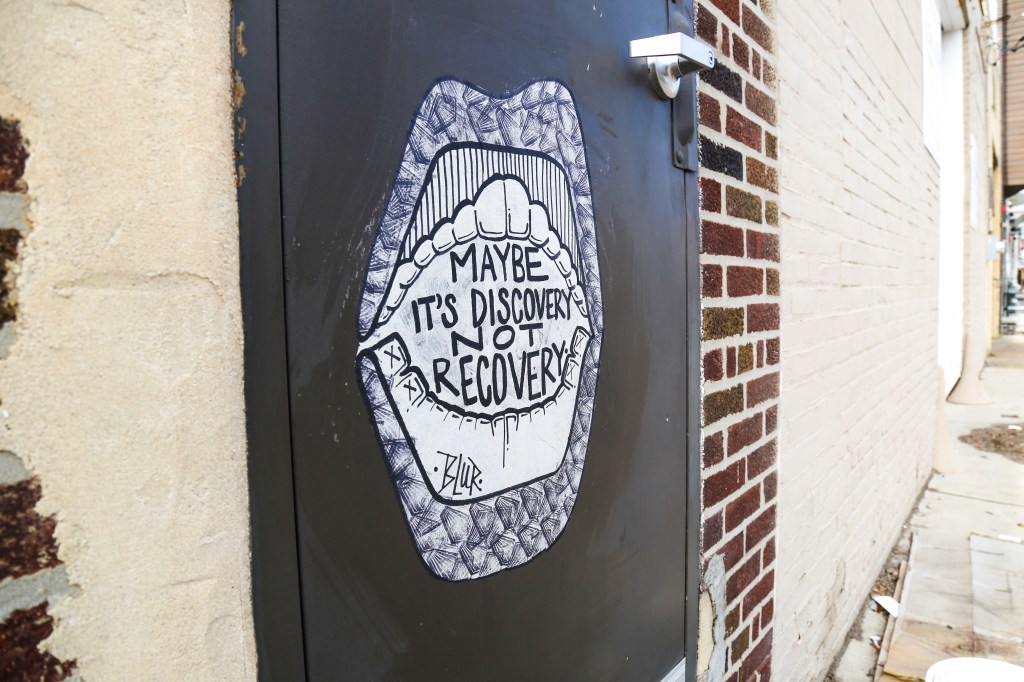 MAYBE
IT'S DISCOVERY
NOT
RECOVERY.
·BLUR·